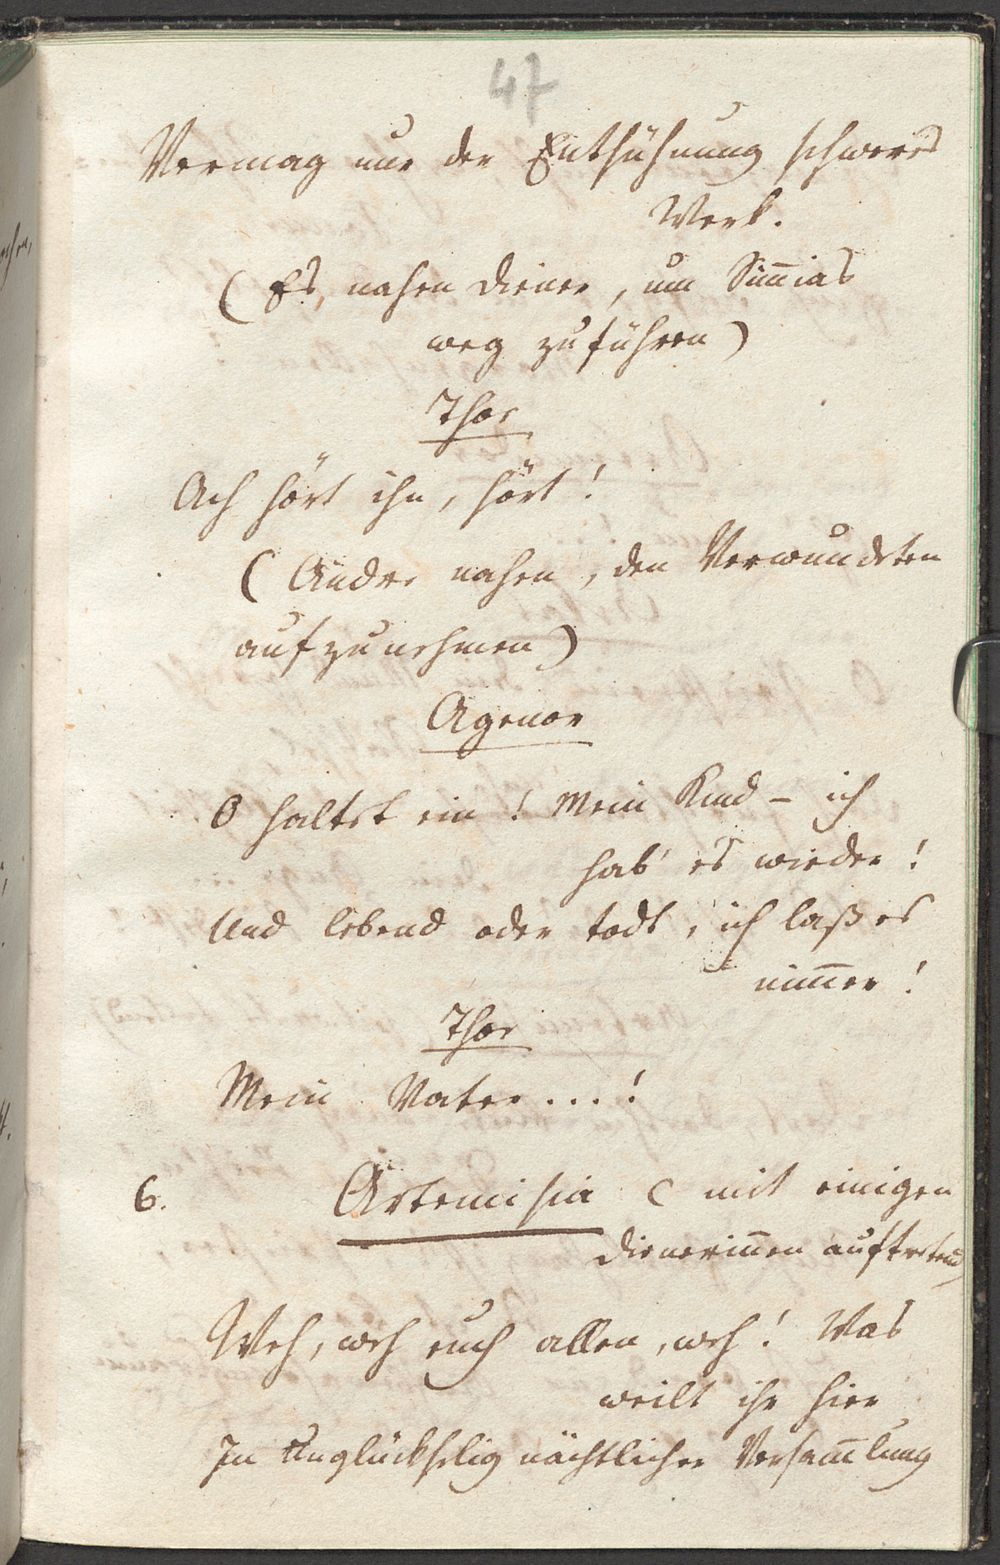 47
Vermag nur der Entsühnung schweres
Werk.
(Es nahen Diener, um Sim̅ias
weg zuführen)
Chor
Ach hört ihn, hört!
(Andre nahen, den Verwundeten
aufzunehmen)
Agenor
O haltet ein! Mein Kind – ich
hab' es wieder!
Und lebend oder todt, ich laß es
nim̅er!
Chor
Mein Vater...!
6. Artemisia (mit einigen
Dienerin̅en auftretend)
Weh, weh euch allen, weh! Was
weilt ihr hier
In unglückselig nächtlicher Versam̅lung